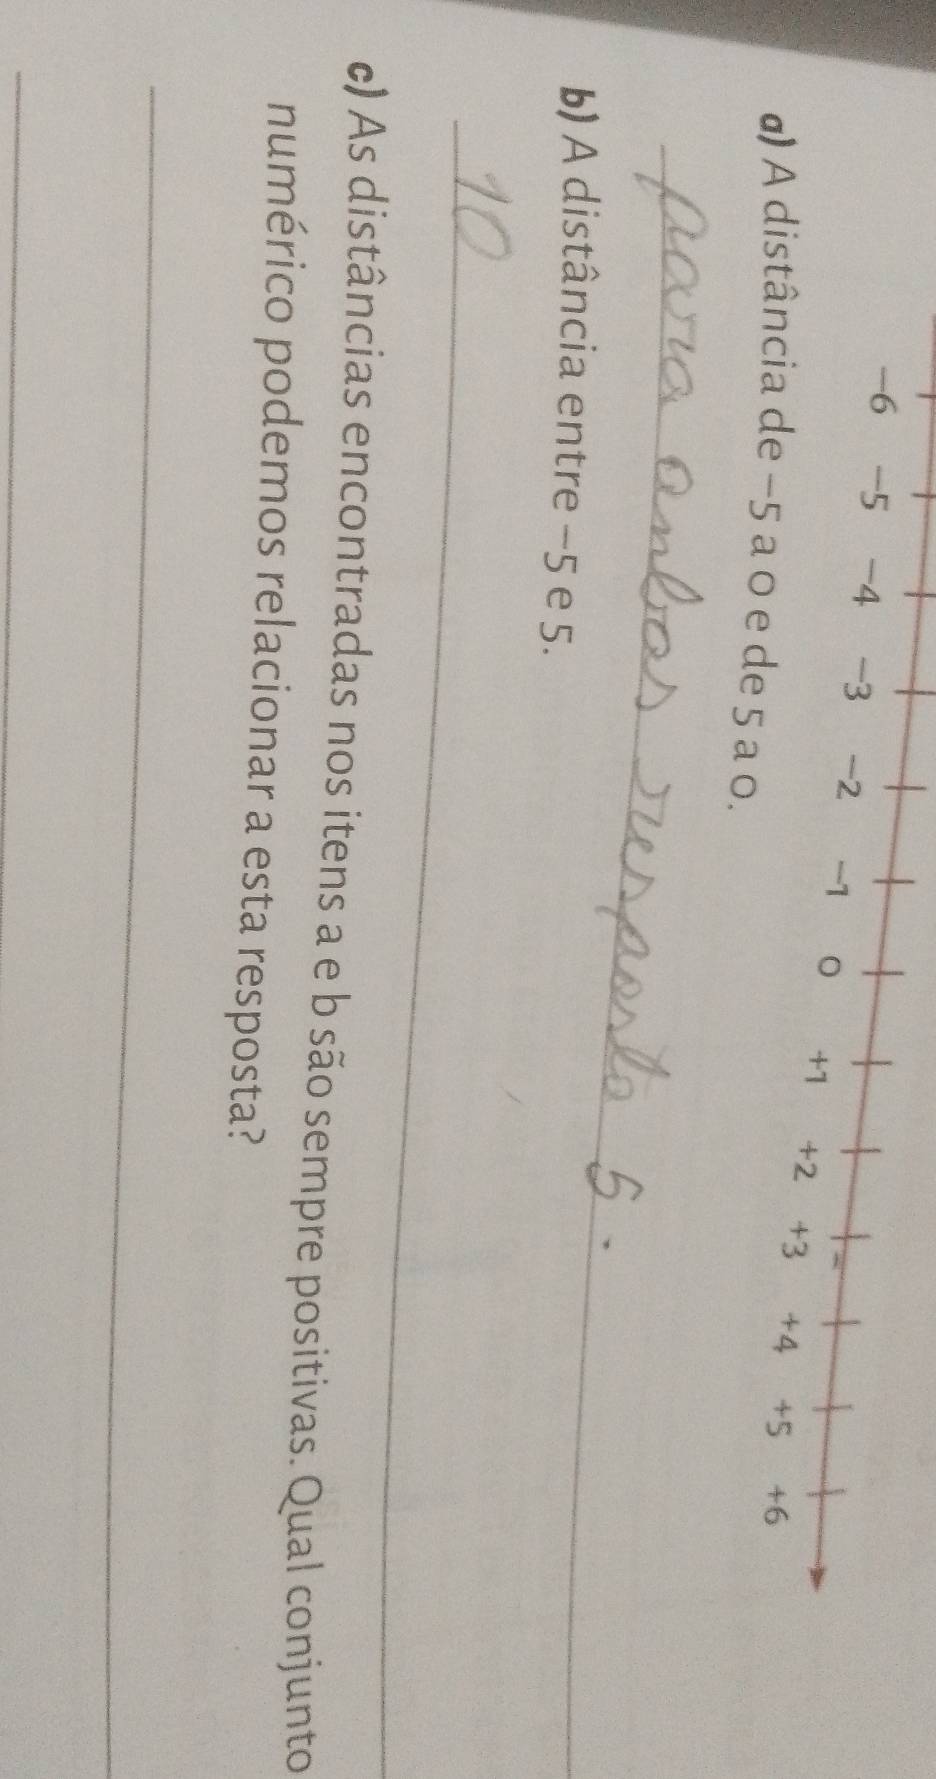 -6 -5 -4 -3 -2 -1 0 +1 +2 +3 +4 +5 +6
a) A distância de -5 a 0 e de 5 a 0.
para ambos resposta 5.
b) A distância entre -5 e 5.
10
c) As distâncias encontradas nos itens a e b são sempre positivas. Qual conjunto
numérico podemos relacionar a esta resposta?